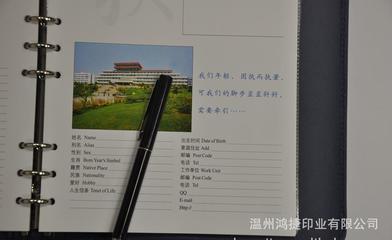 我们年轻，因执而执著，
可我们的脚步益益轩轩，
需要牵引……
姓名 Name
别名 Alias
性别 Sex
生肖 Born Year's Symbol
籍贯 Native Place
民族 Nationality
爱好 Hobby
人生信条 Tenet of Life
出生时间 Date of Birth
家庭住址 Add
邮编 Post Code
电话 Tel
工作单位 Work Unit
邮编 Post Code
电话 Tel
QQ
E-mail
Http://
温州鸿捷印业有限公司